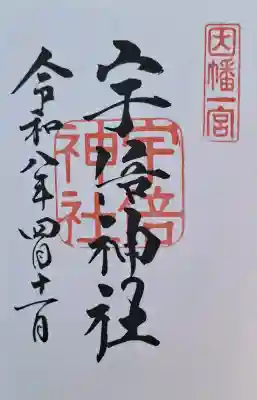 因幡一宮
宇倍神社
宇倍神社
令和八年四月十一日